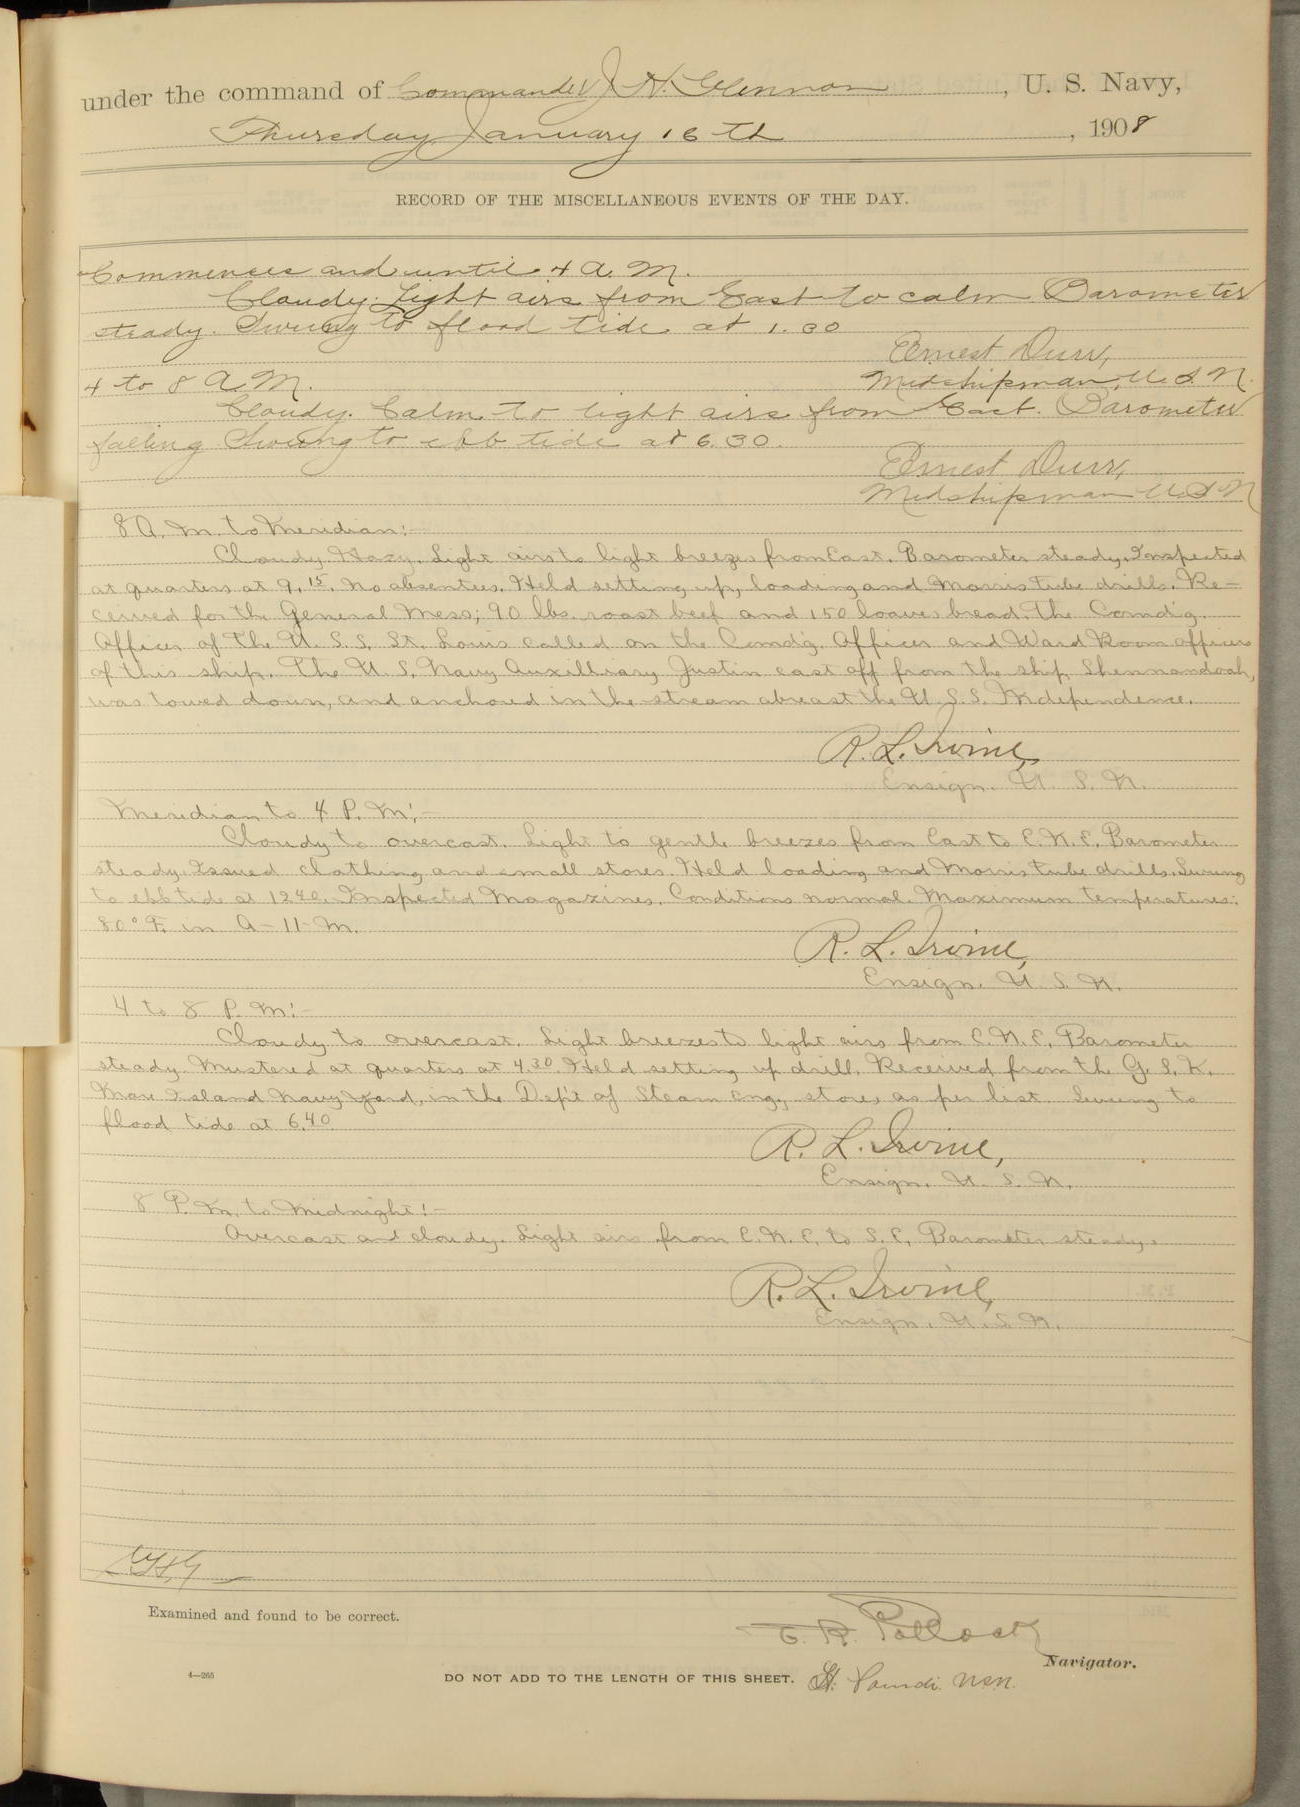 under the command of Commander J. H. Glennon, U. S. Navy,
Thursday January 16th, 1908
RECORD OF THE MISCELLANEOUS EVENTS OF THE DAY.
Commences and until 4 A. M.
Cloudy. Light airs from East to calm Barometer
steady. Swung to flood tide at 1.30
Ernest Durr,
4 to 8 A. M.
Midshipman, U. S. N.
Cloudy. Calm to light airs from East. Barometer
falling Swung to ebb tide at 6.30.
Ernest Durr,
Midshipman U. S. N
8 A. M. to Meridian:-
Cloudy Hazy. Light airs to light breezes from East. Barometer steady. Inspected
at quarters at 9.15. No absentees. Held setting up, loading and Morris tube drills. Re-
ceived for the General Mess; 90 lbs. roast beef and 150 loaves bread. The Comd'g.
Officer of the U. S. S. St. Louis called on the Comd'g. Officer and Ward Room officers
of this ship. The U. S. Navy Auxilliary Justin cast off from the ship Shennandoah,
was towed down, and anchored in the stream abreast the U. S. S. Independence.
R. L. Irvine,
Ensign. U. S. N.
Meridian to 4 P. M:-
Cloudy to overcast. Light to gentle breezes from East to E. N. E. Barometer
steady. Issued clothing and small stores. Held loading and Morris tube drills. Swung
to ebb tide at 12.40. Inspected Magazines. Conditions normal. Maximum temperatures:
80° F. in A-11-M.
R. L. Irvine,
Ensign. U. S. N.
4 to 8 P. M:-
Cloudy to overcast. Light breezes to light airs from E. N. E. Barometer
steady. Mustered at quarters at 4.30. Held setting up drill. Received from the G. S. K.
Mare Island Navy Yard, in the Dep't of Steam Eng., stores as per list. Swung to
flood tide at 6.40
R. L. Irvine,
Ensign. U. S. N.
8 P. M. to Midnight:-
Overcast and cloudy. Light airs from E. N. E. to S. E. Barometer steady.
R. L. Irvine,
Ensign. U. S. N.
Examined and found to be correct.
E. R. Pollock
Navigator.
4—265
DO NOT ADD TO THE LENGTH OF THIS SHEET.